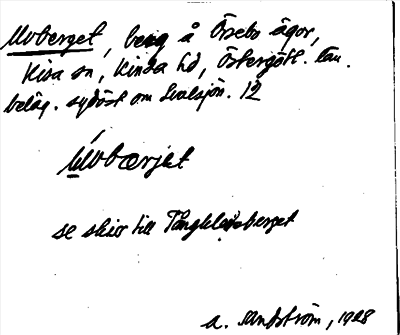 Uvberget, berg å Örsebo ägor,
Kisa sn, Kinda hd, Östergötl. län.
beläg. sydöst om Svalsjön. 12
Uvbærjet
se skiss till Tängkleivsberget
A. Sandström, 1928